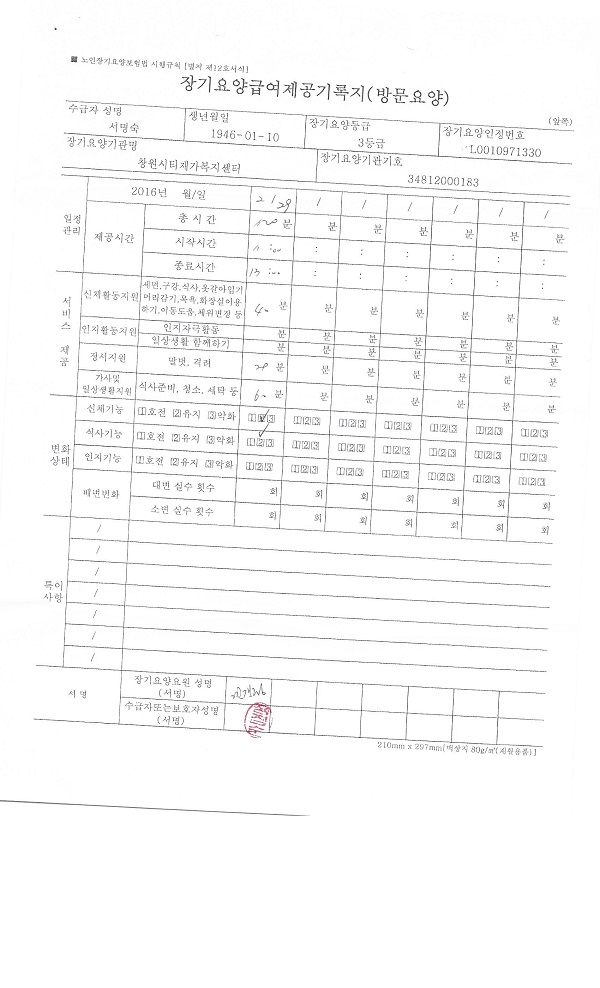 ■ 노인장기요양보험법 시행규칙 [별지 제12호서식]
장기요양급여제공기록지(방문요양)
(앞쪽)
수급자 성명 생년월일 장기요양등급 장기요양인정번호
서명숙 1946-01-10 3등급 L0010971330
장기요양기관명 장기요양기관기호
창원시티재가복지센터 34812000183
2016년 월/일 2/29 / / / / / /
일정관리 제공시간 총 시간 120 분 분 분 분 분 분 분
시작시간 11:00 : : : : : :
종료시간 13:00 : : : : : :
서비스 제공
신체활동지원 세면,구강,식사,옷갈아입기
머리감기,목욕,화장실이용
하기,이동도움,체위변경 등 40 분 분 분 분 분 분 분
인지활동지원 인지자극활동 분 분 분 분 분 분 분
일상생활 함께하기 분 분 분 분 분 분 분
정서지원 말벗, 격려 20 분 분 분 분 분 분 분
가사및
일상생활지원 식사준비, 청소, 세탁 등 60 분 분 분 분 분 분 분
변화상태
신체기능 1호전 2유지 3악화 123 123 123 123 123 123 123
식사기능 1호전 2유지 3악화 123 123 123 123 123 123 123
인지기능 1호전 2유지 3악화 123 123 123 123 123 123 123
배변변화 대변 실수 횟수 회 회 회 회 회 회 회
소변 실수 횟수 회 회 회 회 회 회 회
특이사항
/
/
/
/
/
/
/
서 명
장기요양요원 성명
(서명)
수급자또는보호자성명
(서명)
210mm x 297mm[백상지 80g/㎡(재활용품)]